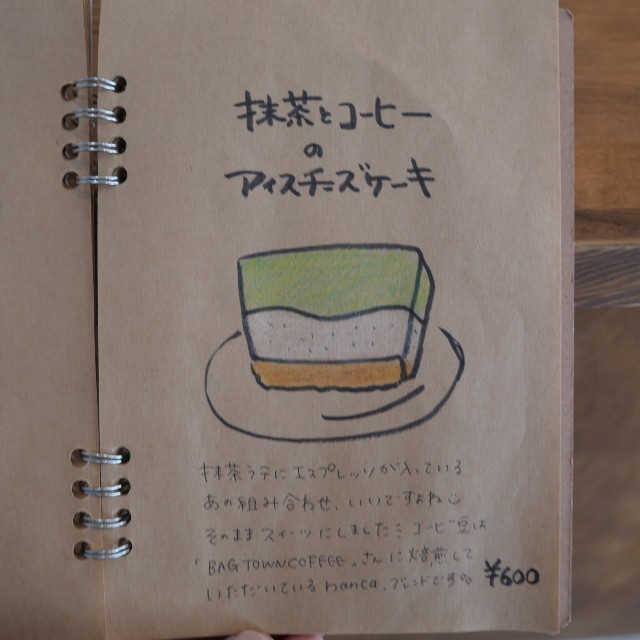 抹茶とコーヒー
の
アイスチーズケーキ
抹茶ラテにエスプレッソが入っている
あの組み合わせ、いいですよね
そのままスイーツにしました コーヒー豆は
「BAGTOWNCOFFEE」さんに焙煎して
いただいているhancaブレンドです。
¥600